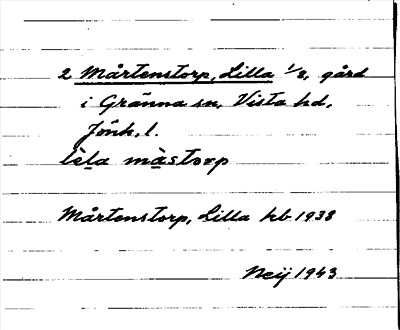 2 Mårtenstorp, Lilla 1/8, gård
i Gränna sn, Vista hd,
Jönk. l.
lèla màstorp
Mårtenstorp, Lilla kb 1938
Neij 1943